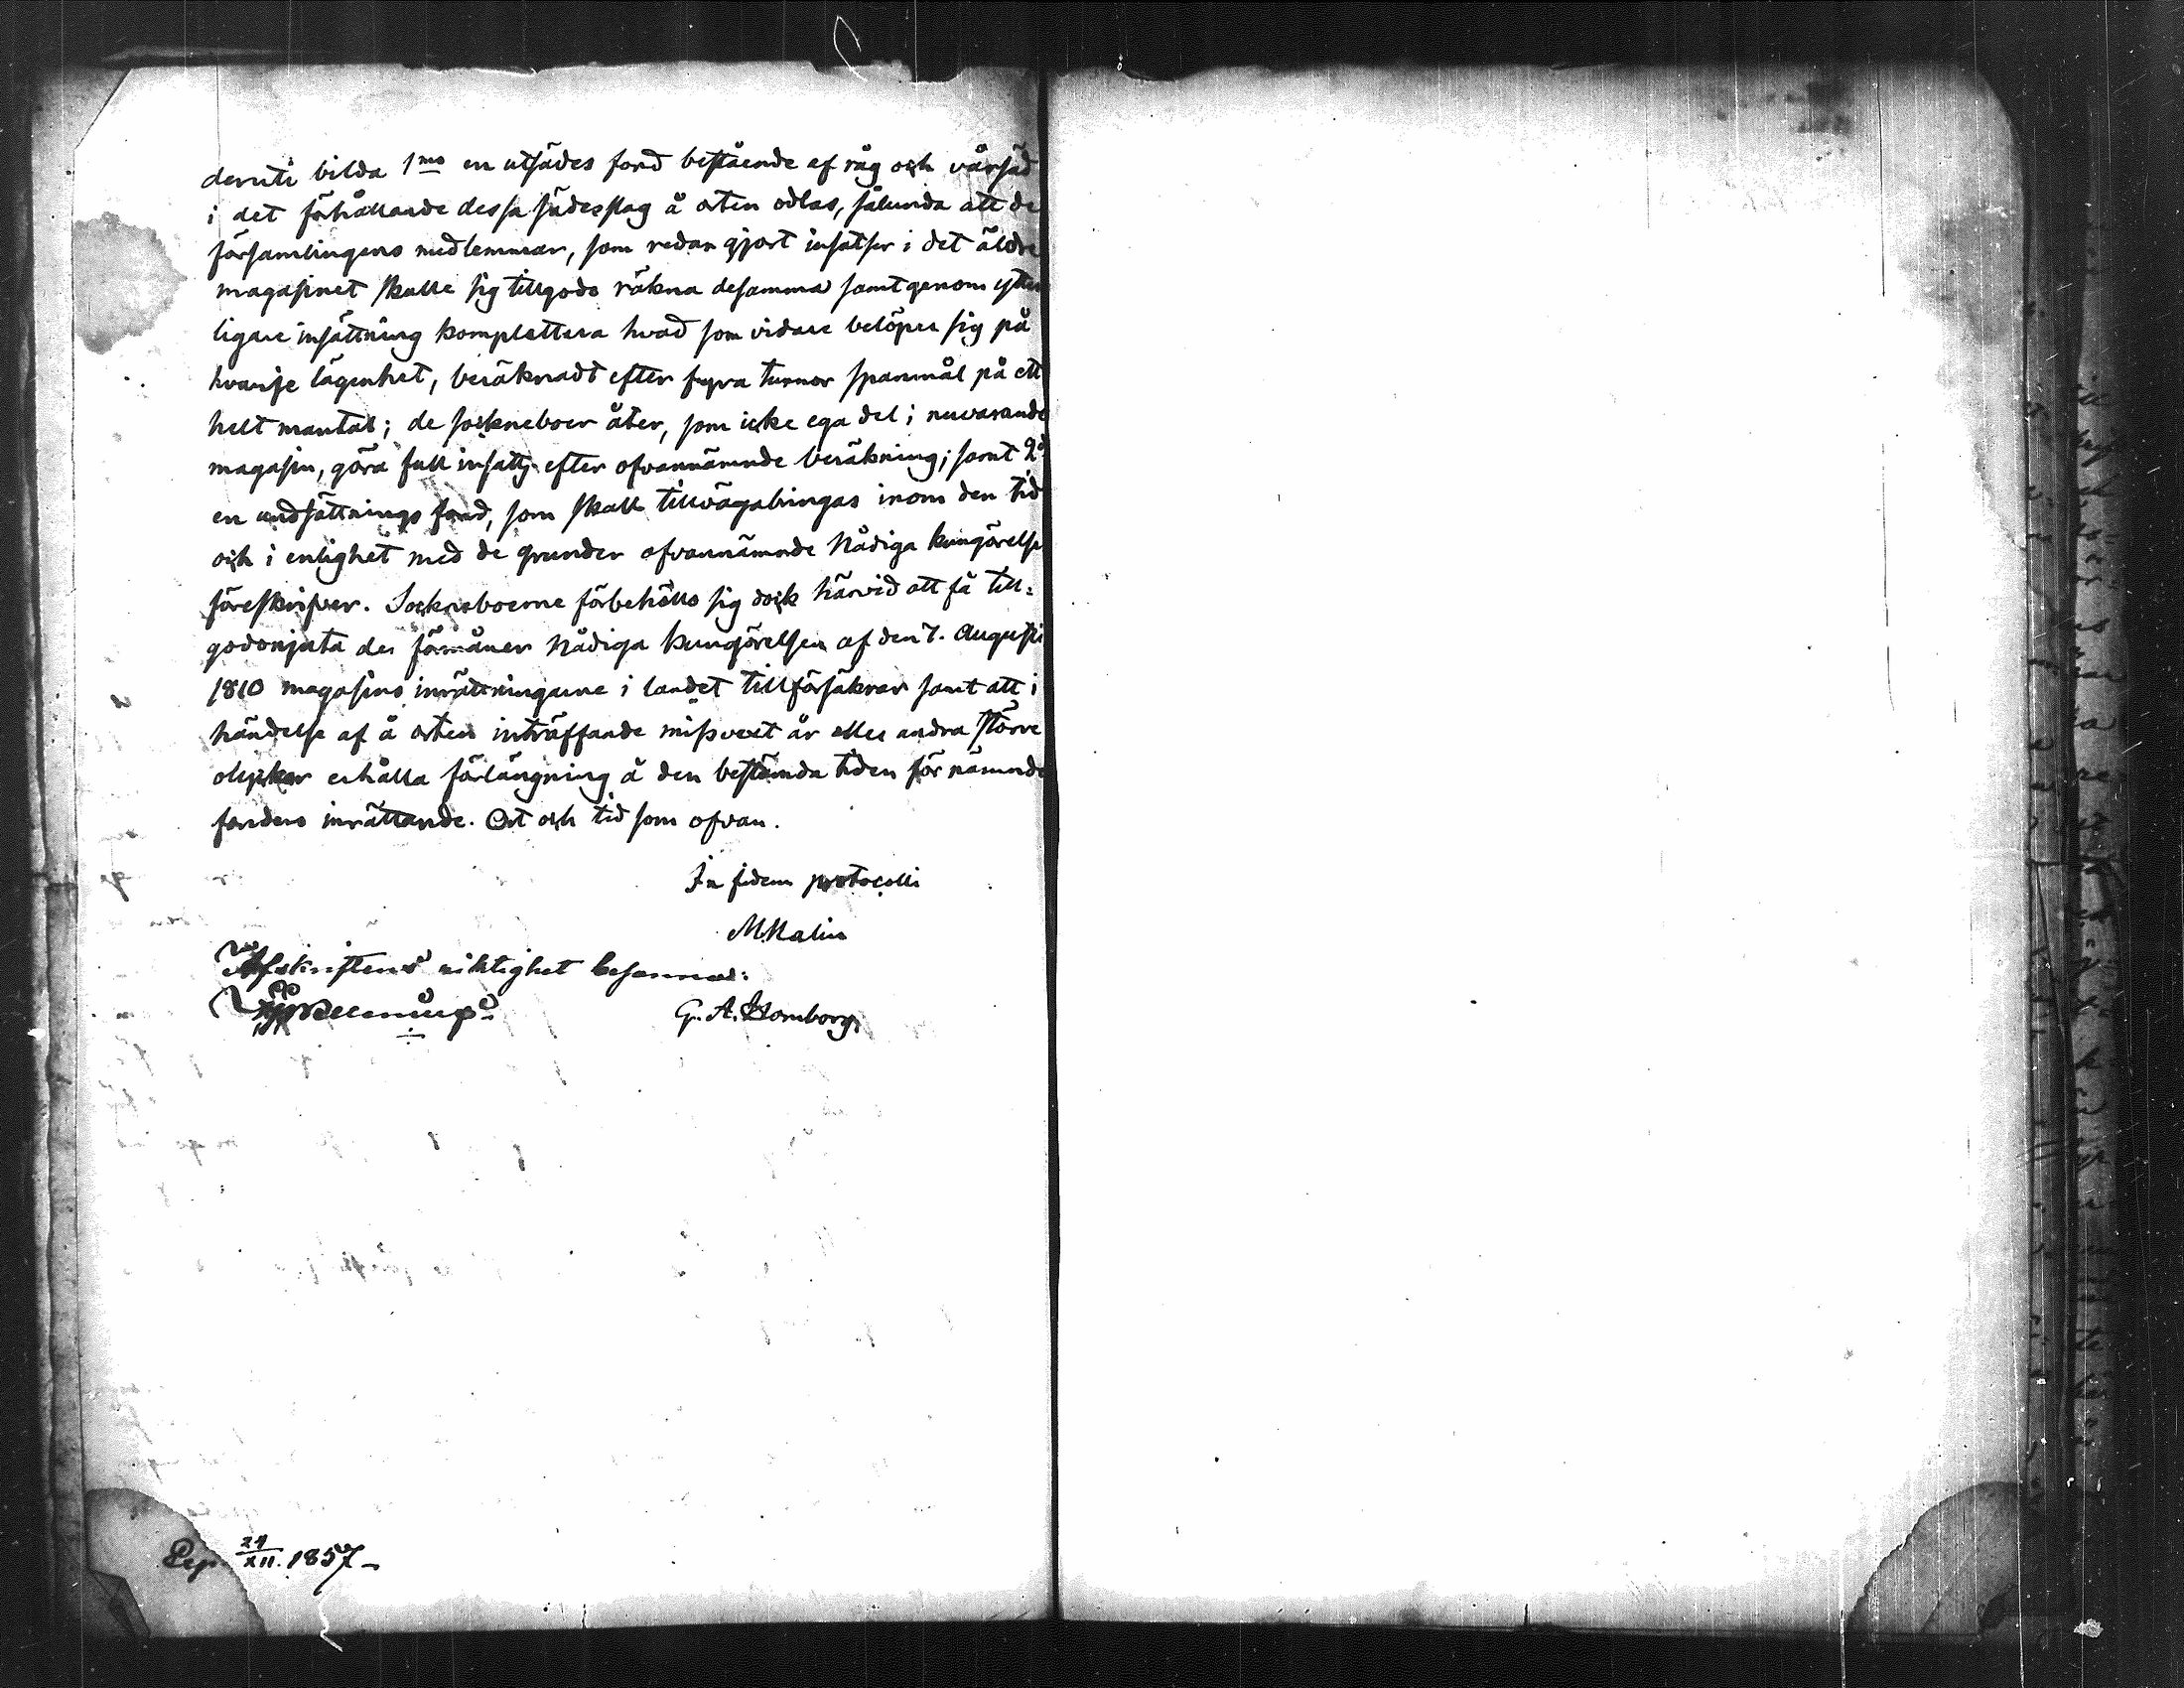 deruti bilda 1mo en utsädes fond bestående af råg och vårsäd
i det förhållande dessa sädesslag å orten odlas, sålunda att de
församlingens medlemmar, som redan gjort insatser i det äldre
magasinet skulle sig tillgodo räkna desamma samt genom ytter
ligare insättning komplettera hvad som vidare belöper sig på
hvarje lägenhet, beräknadt efter fyra tunnor spanmål på ett
helt mantal; de sockneboer åter, som icke ega del i nuvarande
magasin, göra full insatts efter ofvannämnde beräkning; samt 2do
en undsättnings fond, som skall tillvägabringas inom den tid
och i enlighet med de grunder ofvannämnde Nådiga kungörelse
föreskrifver. Sockneboerne förbehöllo sig dock härvid att få till-
godonjuta de förmåner Nådiga kungörelsen af den 7. Augusti
1810 magasins inrättningarne i landet tillförsäkrar samt att i
händelse af å orten inträffande missvext år eller andra större
olyckor erhålla förlängning å den bestämda tiden för nämnde
fonders inrättande. Ort och tid som ofvan.
In fidem protocolli
M. Malin
Afskriftens riktighet besannar:
G. A. Homborg.
24/XII. 1857